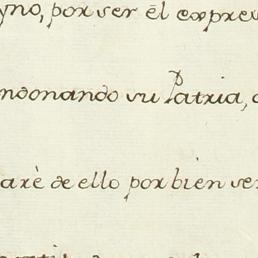 yno, por ser él expres
ndonando su Patria,
arè de ello por bien ser